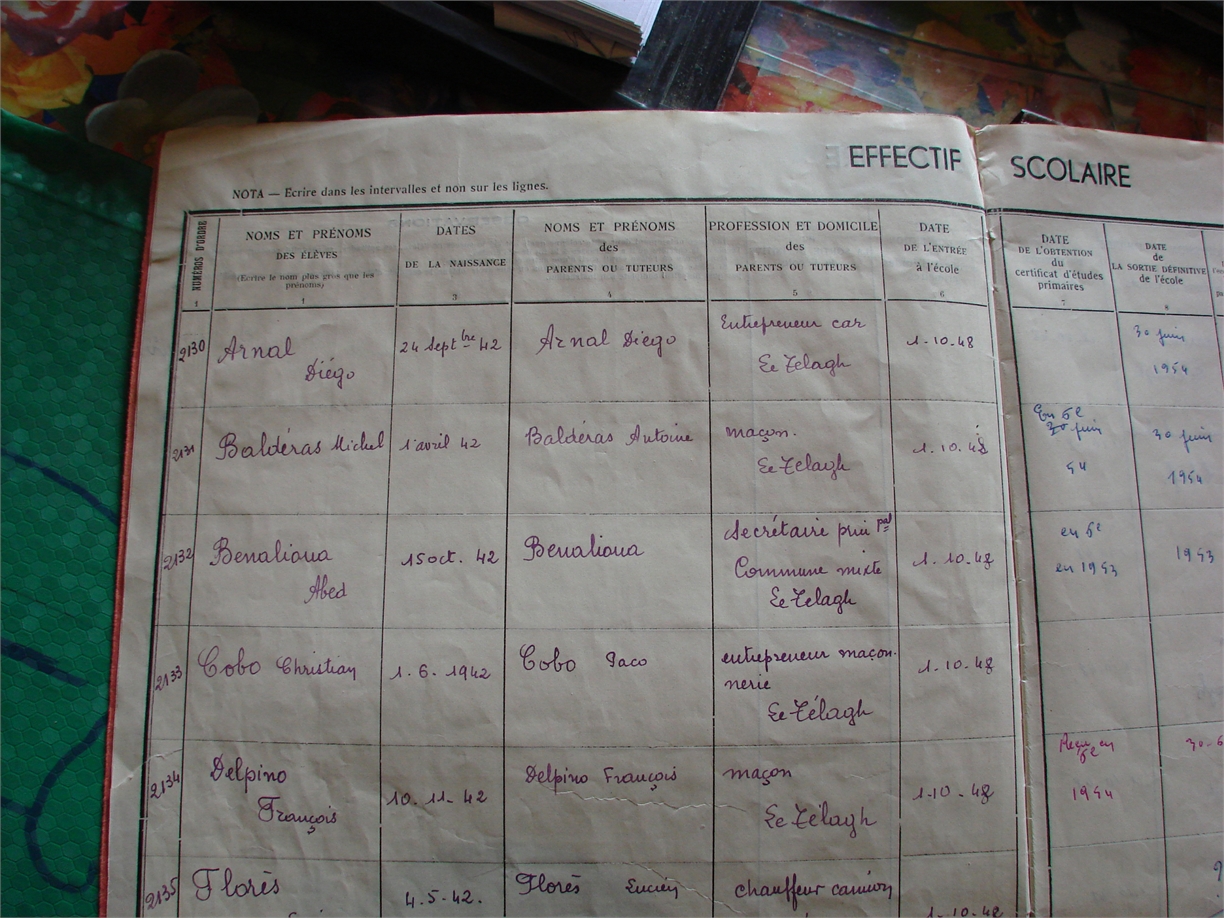 EFFECTIF SCOLAIRE
NOTA — Ecrire dans les intervalles et non sur les lignes.
NUMÉROS D'ORDRE
1
NOMS ET PRÉNOMS
DES ÉLÈVES
(Ecrire le nom plus gros que les
prénoms)
1
DATES
DE LA NAISSANCE
3
NOMS ET PRÉNOMS
des
PARENTS OU TUTEURS
4
PROFESSION ET DOMICILE
des
PARENTS OU TUTEURS
5
DATE
DE L'ENTRÉE
à l'école
6
DATE
DE L'OBTENTION
du
certificat d'études
primaires
7
DATE
de
LA SORTIE DÉFINITIVE
de l'école
8
2130
Arnal
Diégo
24 Septbre 42
Arnal Diégo
Entrepreneur car
Le Télagh
1-10-48
30 juin
1954
2131
Baldéras Michel
1 avril 42
Baldéras Antoine
maçon.
Le Télagh
1-10-48
En 6e
30 juin
54
30 juin
1954
2132
Benalioua
Abed
15 oct. 42
Benalioua
Secrétaire prinpal
Commune mixte
Le Télagh
1-10-48
en 6e
en 1953
1953
2133
Cobo Christian
1.6.1942
Cobo Paco
entrepreneur maçon-
nerie
Le Télagh
1-10-48
2134
Delpino
François
10.11.42
Delpino François
maçon
Le Télagh
1-10-48
Reçu en
6e
1954
30-6
2135
Florès
4-5-42.
Florès Lucien
chauffeur camion
1-10-48